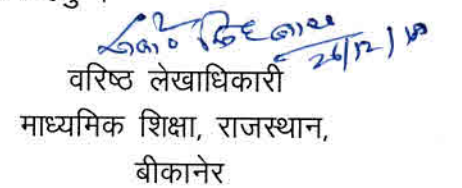 26/12/18
वरिष्ठ लेखाधिकारी
माध्यमिक शिक्षा, राजस्थान,
बीकानेर